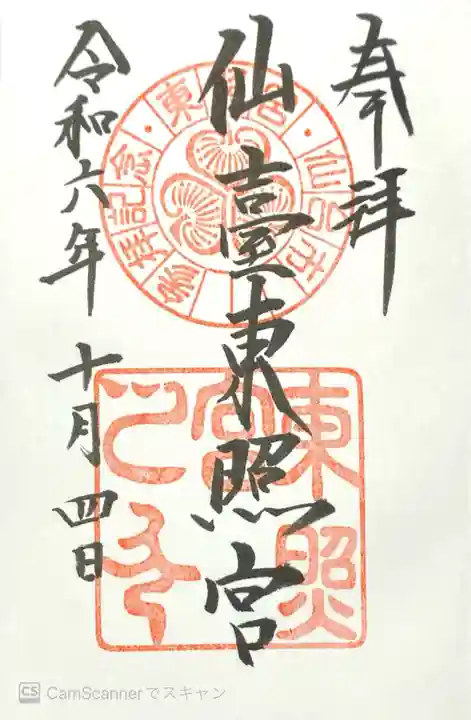 奉拝
仙臺東照宮
令和六年
十月四日
東照宮・仙台市・参拝記念
東照宮
CS CamScannerでスキャン